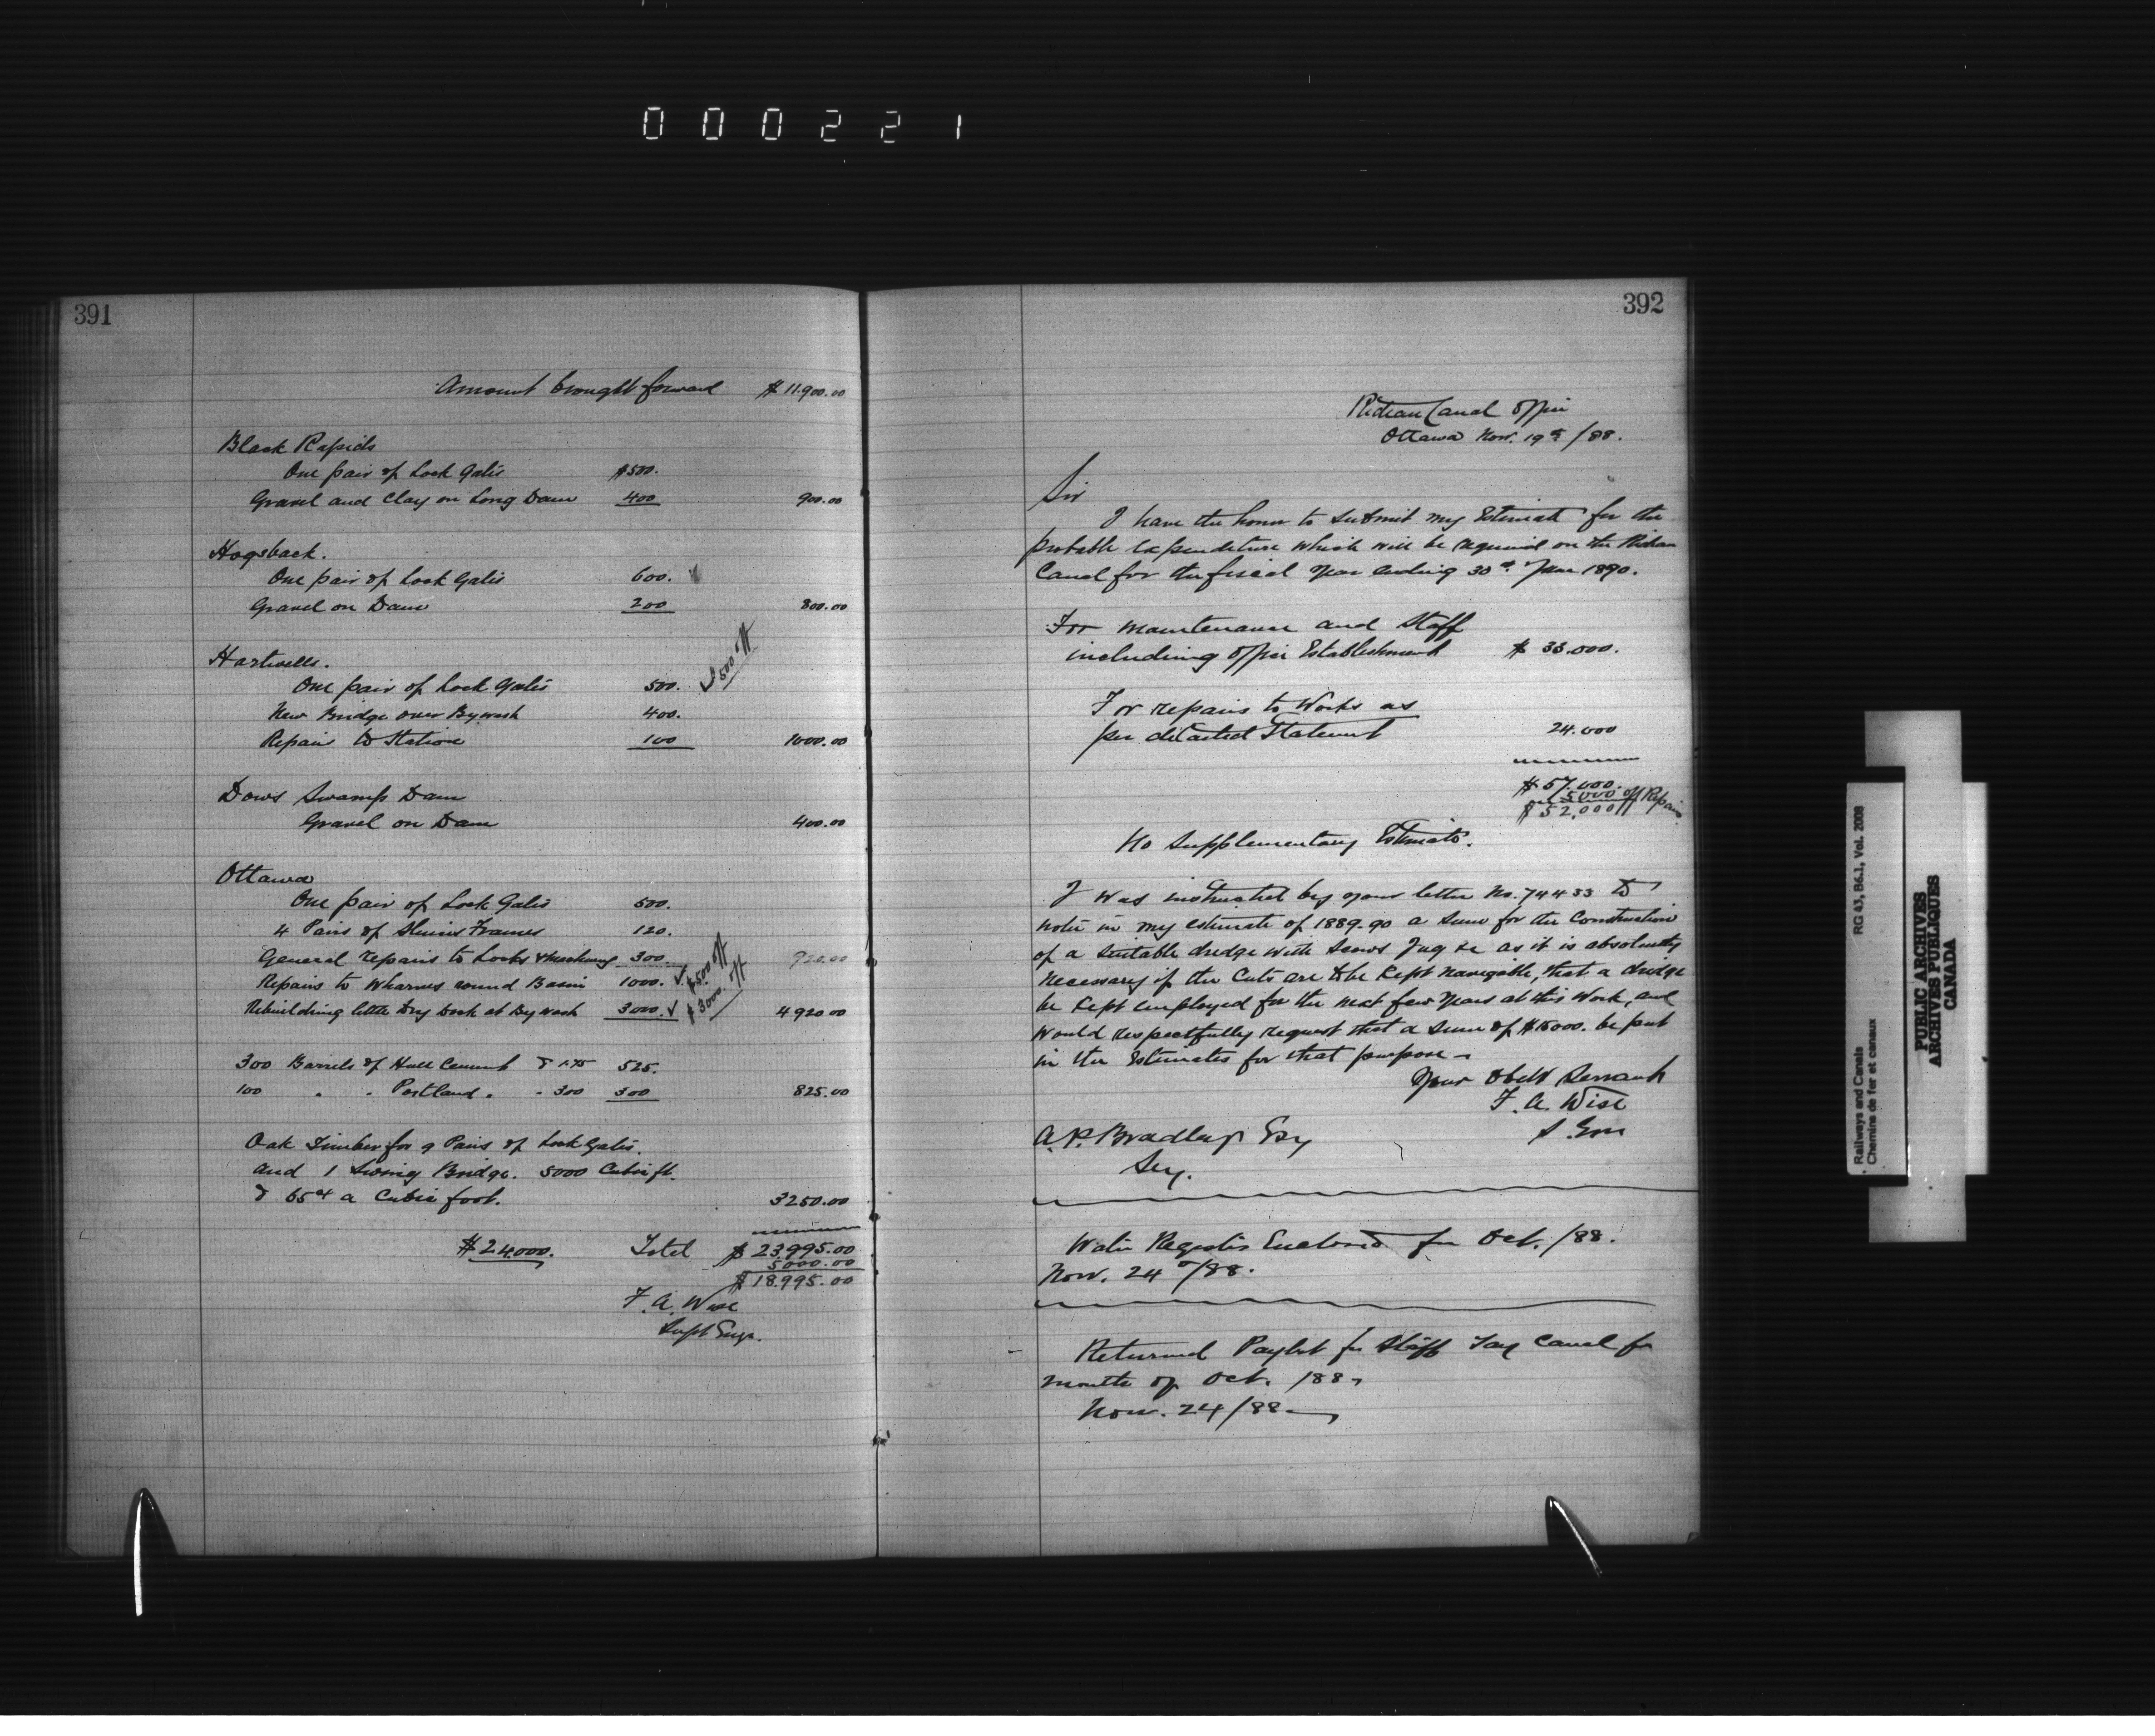 000221
391
Amount brought forward $11.900.00
Black Rapids
One pair of Lock Gates $500.
Gravel and Clay on Long Dam 400 900.00
Hogsback.
One pair of Lock Gates 600.
Gravel on Dam 200 800.00
Hartwells.
One pair of Lock Gates 500. $500 off
New Bridge over Bywash 400.
Repairs to Station 100 1000.00
Dows Swamp Dam
Gravel on Dam 400.00
Ottawa
One pair of Lock Gates 500.
4 Pairs of Sluice Frames 120.
General repairs to Locks & Machinery 300. 920.00
Repairs to Wharves round Basin 1000. ✓ $500 off
Rebuilding little Dry Dock at By wash 3000. ✓ $3000. off 4920.00
300 Barrels of Hull Cement @ 1.75 525.
100 " " Portland " " 300 300 825.00
Oak Timber for 9 Pairs of Lock Gates.
and 1 Swing Bridge. 5000 Cubic ft.
@ 65cts a Cubic foot. 3250.00
$24.000. Total $23.995.00
5000.00
$18.995.00
F. A. Wise
Supt Engr.
392
Rideau Canal Office
Ottawa Nov. 19th /88.
Sir
I have the honor to submit my Estimate for the
probable expenditure which will be required on the Rideau
Canal for the fiscal year ending 30th June 1890.
For maintenance and Staff
including office Establishment $ 33.000.
For repairs to Works as
per detailed Statement 24.000
$ 57.000.
5000 off Repairs
$ 52,000
No Supplementary Estimate.
I was instructed by your letter No. 74433 to
note in my estimate of 1889-90 a sum for the Construction
of a suitable dredge with Scows Tug &c as it is absolutely
necessary if the Cuts are to be kept navigable, that a dredge
be kept employed for the next few years at this Work, and
would respectfully request that a sum of $15000. be put
in the Estimates for that purpose
Your Obedt Servant
F. A. Wise
S. Eng
A. P. Bradley Esq
Secy.
Water Registers Enclosed for Oct. /88.
Nov. 24th/88.
Returned Paylist for Staff Tay Canal for
month of Oct. /88
Nov. 24/88
Railways and Canals RG 43, B6.1, Vol. 2008
Chemins de fer et canaux
PUBLIC ARCHIVES
ARCHIVES PUBLIQUES
CANADA